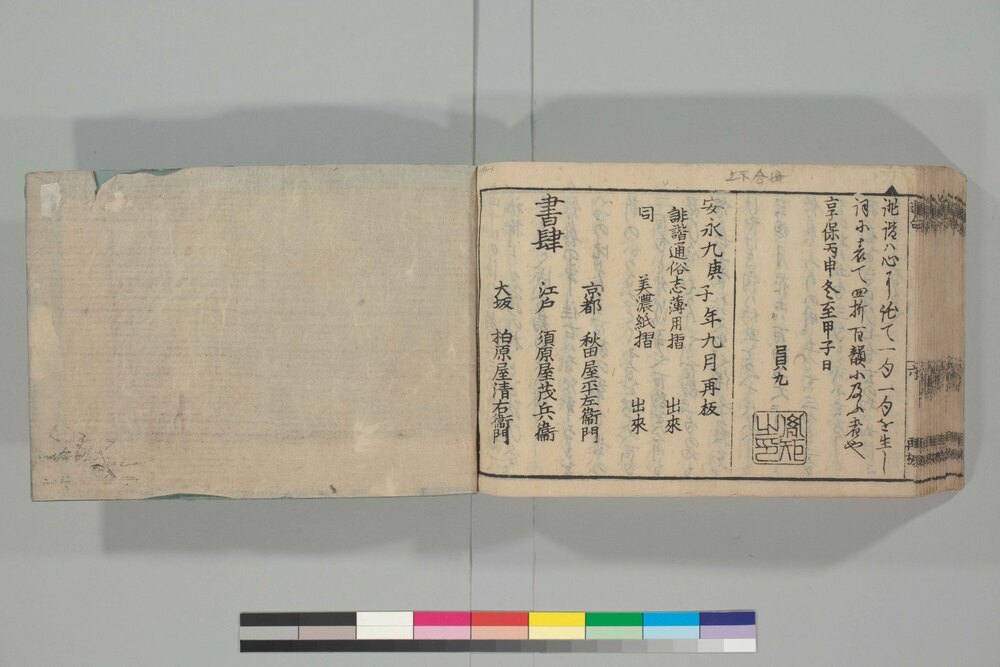 上下合冊
誹諧ハ心より出て一句一句を生し
詞に表て四折百韻に及ふ者や
享保丙申冬至甲子日
員九
安永九庚子年九月再板
誹諧通俗志薄用摺　出來
同　美濃紙摺　出來
書肆
京都　秋田屋平左衞門
江戸　須原屋茂兵衞
大坂　柏原屋清右衞門